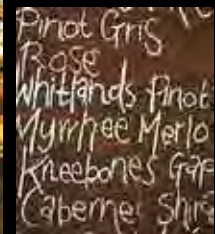 Pinot Gris
Rose
Whitlands Pinot
Myrrhee Merlo
Kneebones Gap
Cabernet Shira